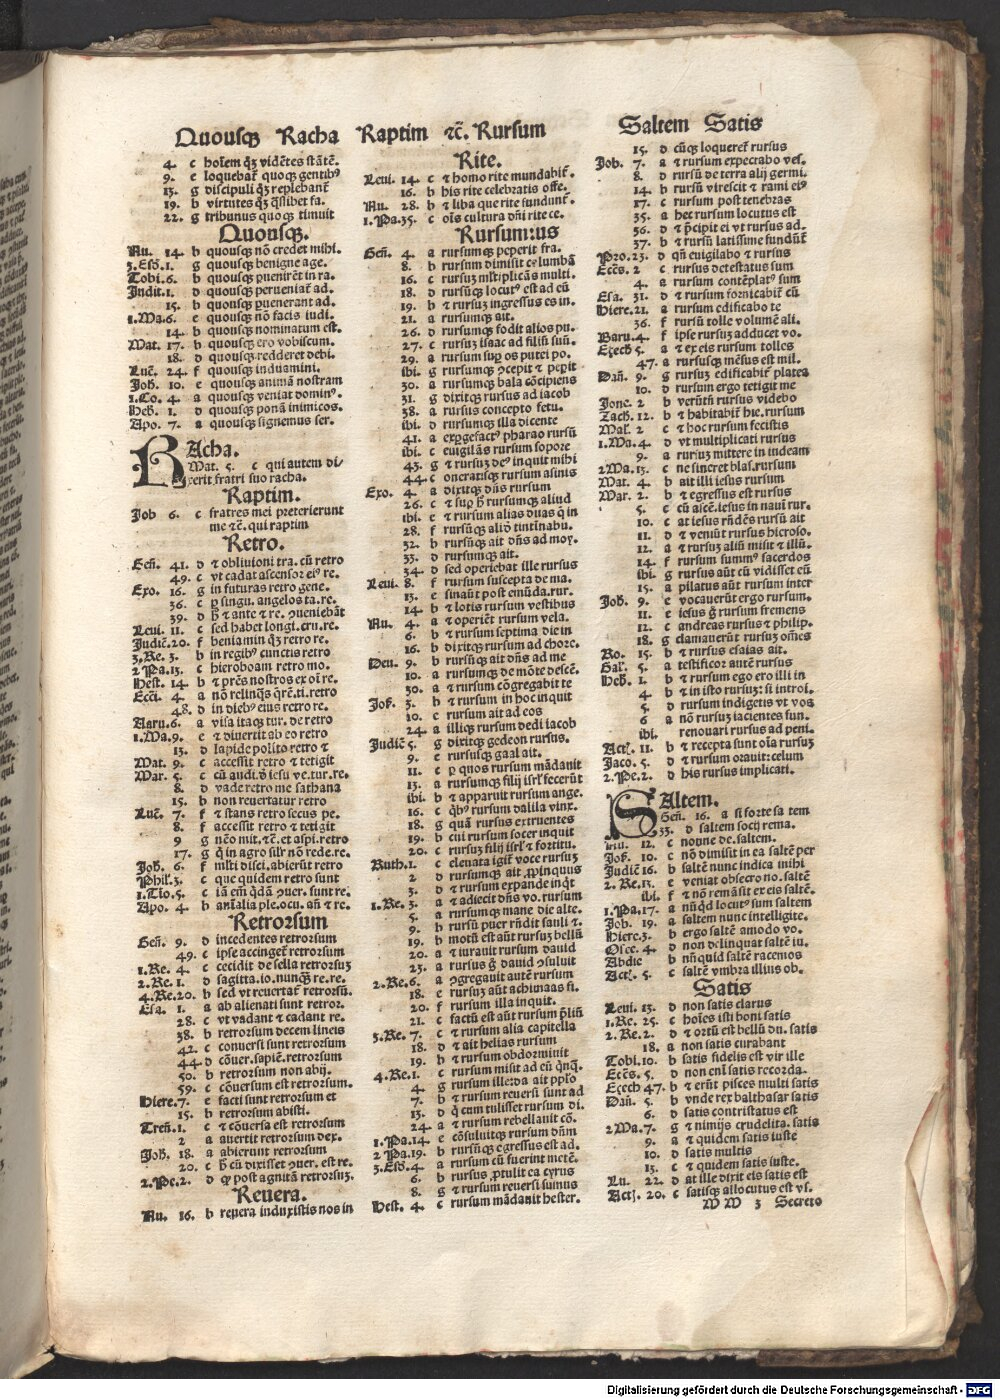 Quousqꝫ Racha Raptim ⁊c̄. Rursum Saltem Satis
4. c hoīem qꝫ vidētes stātē.
9. c loquebat quoqꝫ gentibꝰ
13. g discipuli qꝫ replebant
19. b virtutes qꝫ qsibet fa.
22. g tribunus quoqꝫ timuit
Quousqꝫ.
Nu. 14. b quousqꝫ nō credet mihi.
3.Esd.1. g quousqꝫ benigne age.
Tobi.6. b quousqꝫ puenirēt in ra.
Judit.1. d quousqꝫ perueniat ad.
15. b quousqꝫ puenerant ad.
1.Ma.6. e quousqꝫ nō facis iudi.
14. b quousqꝫ nominatum est.
Mat. 17. b quousqꝫ ero vobiscum.
18. d quousqꝫ redderet debi.
Luc. 24. f quousqꝫ induamini.
Joh. 10. e quousqꝫ animā nostram
1.Co. 4. a quousqꝫ veniat dominꝰ.
Heb. 1. d quousqꝫ ponā inimicos.
Apo. 7. a quousqꝫ signemus ser.
RAcha.
Mat. 5. c qui autem di-
xerit fratri suo racha.
Raptim.
Job 6. c fratres mei preterierunt
me ⁊c̄. qui raptim
Retro.
Geñ. 41. d ⁊ obliuioni tra. cū retro
49. c vt cadat ascensor eiꝰ re.
Exo. 16. g in futuras retro gene.
36. c p singu. angelos ta.re.
39. d h ⁊ ante ⁊ re. ꝯueniebāt
Leui. 11. c sed habet longi. cru.re.
Judic̄.20. f beniamin qꝫ retro re.
3.Re. 3. b in regibꝰ cunctis retro
2 Pa.13. c hieroboam retro mo.
Hest. 14. b ⁊ prēs nostros ex oī re.
Ecci. 4. a nō relinqs qrē.ti.retro
48. d in diebꝰ eius retro re.
Baru.6. a visa itaqꝫ tur. de retro
1.Ma.9. c ⁊ diuertit ab eo retro
13. d lapide polito retro ⁊
Mat. 9. c accessit retro ⁊ tetigit
Mar. 5. c cū audi.ꝫ iesu ve.tur.re.
8. d vade retro me sathana
15. b non reuertatur retro
Luc̄. 7. f ⁊ stans retro secus pe.
8. f accessit retro ⁊ tetigit
9 g nēo mit.⁊c̄.et aspi.retro
17. g q in agro silr nō rede.re.
Joh. 6. f mlti disci.abierūt retro
Phil.3. c que quidem retro sunt
1.Tio.5. c iā em̄ qdā ꝯuer. sunt re.
Apo. 4. b anīalia ple.ocu. añ ⁊ re.
Retrorsum
Geñ. 9. d incedentes retrorsum
49. c ipse accinget retrorsum
1.Re. 4. c cecidit de sella retrorsuꝫ
2.Re. 1. d sagitta.io.nunqꝫ re.re.
4.Re.20. b sed vt reuertat retrorsū.
Esa. 1. a ab alienati sunt retror.
28. c vt vadant ⁊ cadant re.
38. b retrorsum decem lineis
42. c conuersi sunt retrorsum
44. d cōuer.sapiē.retrorsum
50. b retrorsum non abij.
59. c cōuersum est retrorsum.
Hiere.7. e facti sunt retrorsum et
15. b retrorsum abisti.
Treñ.1. c ⁊ cōuersa est retrorsum
2 a auertit retrorsum dex.
Joh. 18. a abierunt retrorsum
20. c h cū dixisset ꝯuer. est re.
2.Pe.2. d qꝫ post agnitā retrorsuꝫ.
Reuera.
Nu. 16. b reuera induxistis nos in
Rite.
Leui. 14. c ⁊ homo rite mundabit.
16. b his rite celebratis offe.
Nu. 28. b ⁊ liba que rite fundunt.
1.Pa.35. c oīs cultura dñi rite ce.
Rursum:us
Geñ. 4. a rursumqꝫ peperit fra.
8. b rursum dimisit columbā
16. c rursuꝫ mltiplicās multi.
18. d rursūqꝫ locutꝰ est ad eū
19. b ⁊ rursuꝫ ingressus es in.
21. a rursumqꝫ ait.
26. d rursumqꝫ fodit alios pu.
27. c rursuꝫ isaac ad filiū suū.
29. a rursum supꝫ os putei po.
ibi. g rursumqꝫ ꝯcepit ⁊ pepit
30. a rursumqꝫ bala cōcipiens
31. g dixitqꝫ rursus ad iacob
38. a rursus concepto fetu.
ibi. d rursumqꝫ illa dicente
41. a expgefactꝰ pharao rursū
ibi. c euigilās rursum sopore
43. g ⁊ rursuꝫ deꝰ inquit mihi
44. c oneratisqꝫ rursum asinis
Exo. 4. a dixitqꝫ dñs rursum
26. c ⁊ sup h rursumqꝫ aliud
ibi. c ⁊ rursum alias duas q in
28. f rursūqꝫ aliō tintinabu.
32. b rursūqꝫ ait dñs ad moy.
33. d rursumqꝫ ait.
34. d sed operiebat ille rursus
Leui. 8. f rursum suscepta de ma.
13. c sinaūt post emūda.rur.
14. b ⁊ lotis rursum vestibus
Nu. 4. a ⁊ operiēt rursum vela.
6. b ⁊ rursum septima die in
16. b dixitqꝫ rursum ad chore.
Deu. 9. b rursūqꝫ ait dñs ad me
10. a rursumqꝫ de mōte descē.
30. a ⁊ rursum cōgregabit te
Jos. 3. b ⁊ rursum in hoc inquit
10. c rursum ait ad eos
24. a illiqꝫ rursum dedi iacob
Judic̄ 5. g dixitqꝫ gedeon rursus.
9. c rursusqꝫ gaal ait.
11. c p quos rursum mādauit
13. a rursumqꝫ filij isrl fecerūt
ibi. b ⁊ apparuit rursum ange.
16. c qbꝰ rursum dalila vinx.
18. g quā rursus extruentes
19. b cui rursum socer inquit
20. c rursuꝫ filij isrl ⁊ fortitu.
Ruth.1. c eleuata igit voce rursuꝫ
2 d rursumqꝫ ait ꝓpinquus
3. d ⁊ rursum expande inqt
1.Re. 3. a ⁊ adiecit dñs vo. rursum
5. a rursumqꝫ mane die alte.
9. b rursū puer rñdit sauli ⁊.
19. b motū est aūt rursuꝫ bellū
20. a ⁊ iurauit rursum dauid
23. a rursus ġ dauid ꝯsuluit
2.Re.6. a ꝯgregauit autē rursum
18. c rursuꝫ aūt achimaas fi.
20. f rursum illa inquit.
21. c factū est aūt rursum pliū
3.Re. 7. c ⁊ rursum alia capitella
18. d ⁊ ait helias rursum
19. b ⁊ rursum obdormiuit
4.Re.1. c rursum misit ad eū qnqꝫ.
4. g rursum ille:da ait pplo
7. b ⁊ rursum reuersi sunt ad
13. d q cum tulisset rursum di.
24. a ⁊ rursum rebellauit cō.
1.Pa.14. e cōsuluitqꝫ rursum dñm
2 Pa.19. b rursūqꝫ egressus est ad.
3.Esd.4. a rursum cū fuerint metē.
6. b rursus ꝓtulit ea cyrus
8. g ⁊ rursum reuersi sumus
Hest. 4. c rursum mādauit hester.
15. d cūqꝫ loqueret rursus
Job. 7. a ⁊ rursum expectabo ves.
8. d rursū de terra alij germi.
14. b rursū virescit ⁊ rami eiꝰ
17. c rursum post tenebras
35. a hec rursum locutus est
36. d ⁊ pcipit ei vt rursus ad.
37. b ⁊ rursū latissime fundūt
Pro.23. d qñ euigilabo ⁊ rursus
Ecc̄s. 2 c rursus detestatus sum
4. a rursum contēplatꝰ sum
Esa. 31. d ⁊ rursum fornicabit cū
Hiere.21. a rursum edificabo te
36. f rursū tolle volumē ali.
Baru.4. f ipse rursuꝫ adducet vo.
Ezech 5. a ⁊ ex eis rursum tolles
47. a rursusqꝫ mēsus est mil.
Dañ. 9. g rursuꝫ edificabit platea
10. d rursum ergo tetigit me
Jone. 2 b verūtñ rursus videbo
Zach. 12. b ⁊ habitabit hie.rursum
Mal. 2 c ⁊ hoc rursum fecistis
1.Ma.4. d vt multiplicati rursus
9. a rursuꝫ mittere in indeam
2 Ma.13. c ne sincret blas.rursum
Mat. 4. b ait illi iesus rursum
Mar. 2. b ⁊ egressus est rursus
5. c cū ascē.iesus in nauī rur.
10. c at iesus rñdēs rursū ait
11. d ⁊ veniūt rursus hieroso.
12. a ⁊ rursuꝫ aliū misit ⁊ illū.
14. f rursum summꝰ sacerdos
ibi. g rursus aūt cū vidisset eū
15. a pilatus aūt rursum inter
Joh. 9. e vocauerūt ergo rursum.
11. e iesus ġ rursum fremens
12. c andreas rursus ⁊ philip.
18. g clamauerūt rursuꝫ oīnes
Ro. 15. b ⁊ rursus esaias ait.
Gal. 5. a testificor autē rursus
Heb. 1. b ⁊ rursum ego ero illi in
4. b ⁊ in isto rursuꝫ: si introi.
5. d rursum indigetis vt vos
6 a nō rursuꝫ iacientes fun.
ibi. renouari rursus ad peni.
Act. 11. b ⁊ recepta sunt oīa rursuꝫ
Jaco. 5. d ⁊ rursum orauit:celum
2.Pe.2. d his rursus implicati.
SAltem.
Geñ. 16. a si forte sa tem
33. d saltem socij rema.
Nu. 12. c nonne de.saltem.
Jos. 10. c nō dimisit in ea saltē per
Judic̄ 16. b saltē nunc indica mihi
2.Re.13. e veniat obsecro no.saltē
ibi. f ⁊ nō remāsit ex eis saltē.
1.Pa.17. a nūqd locutꝰ sum saltem
Job. 19. a saltem nunc intelligite.
Hiere.3. b ergo saltē amodo vo.
Osee. 4. d non delinquat saltē iu.
Abdie b nūquid saltē racemos
Act. 5. c saltē vmbra illius ob.
Satis
Leui. 13. d non satis clarus
1.Re. 25. c hoīes isti boni satis
2.Re. 2. d ⁊ ortū est bellū du. satis
18. a non satis curabant
Tobi.10. b satis fidelis est vir ille
Ecc̄s. 5. d non enī satis recorda.
Ezech 47. b ⁊ erūt pisces multi satis
Dañ. 5. b vnde rex balthasar satis
6. d satis contristatus est
2 Ma.7. g ⁊ nimijs crudelita. satis
9. a ⁊ quidem satis iuste
10. d satis multis
13. c ⁊ quidem satis iuste.
Lu. 22. d at ille dixit eis satis est
Act. 20. c satisqꝫ allocutus est vs.
MM 3 Secreto
Digitalisierung gefördert durch die Deutsche Forschungsgemeinschaft - DFG